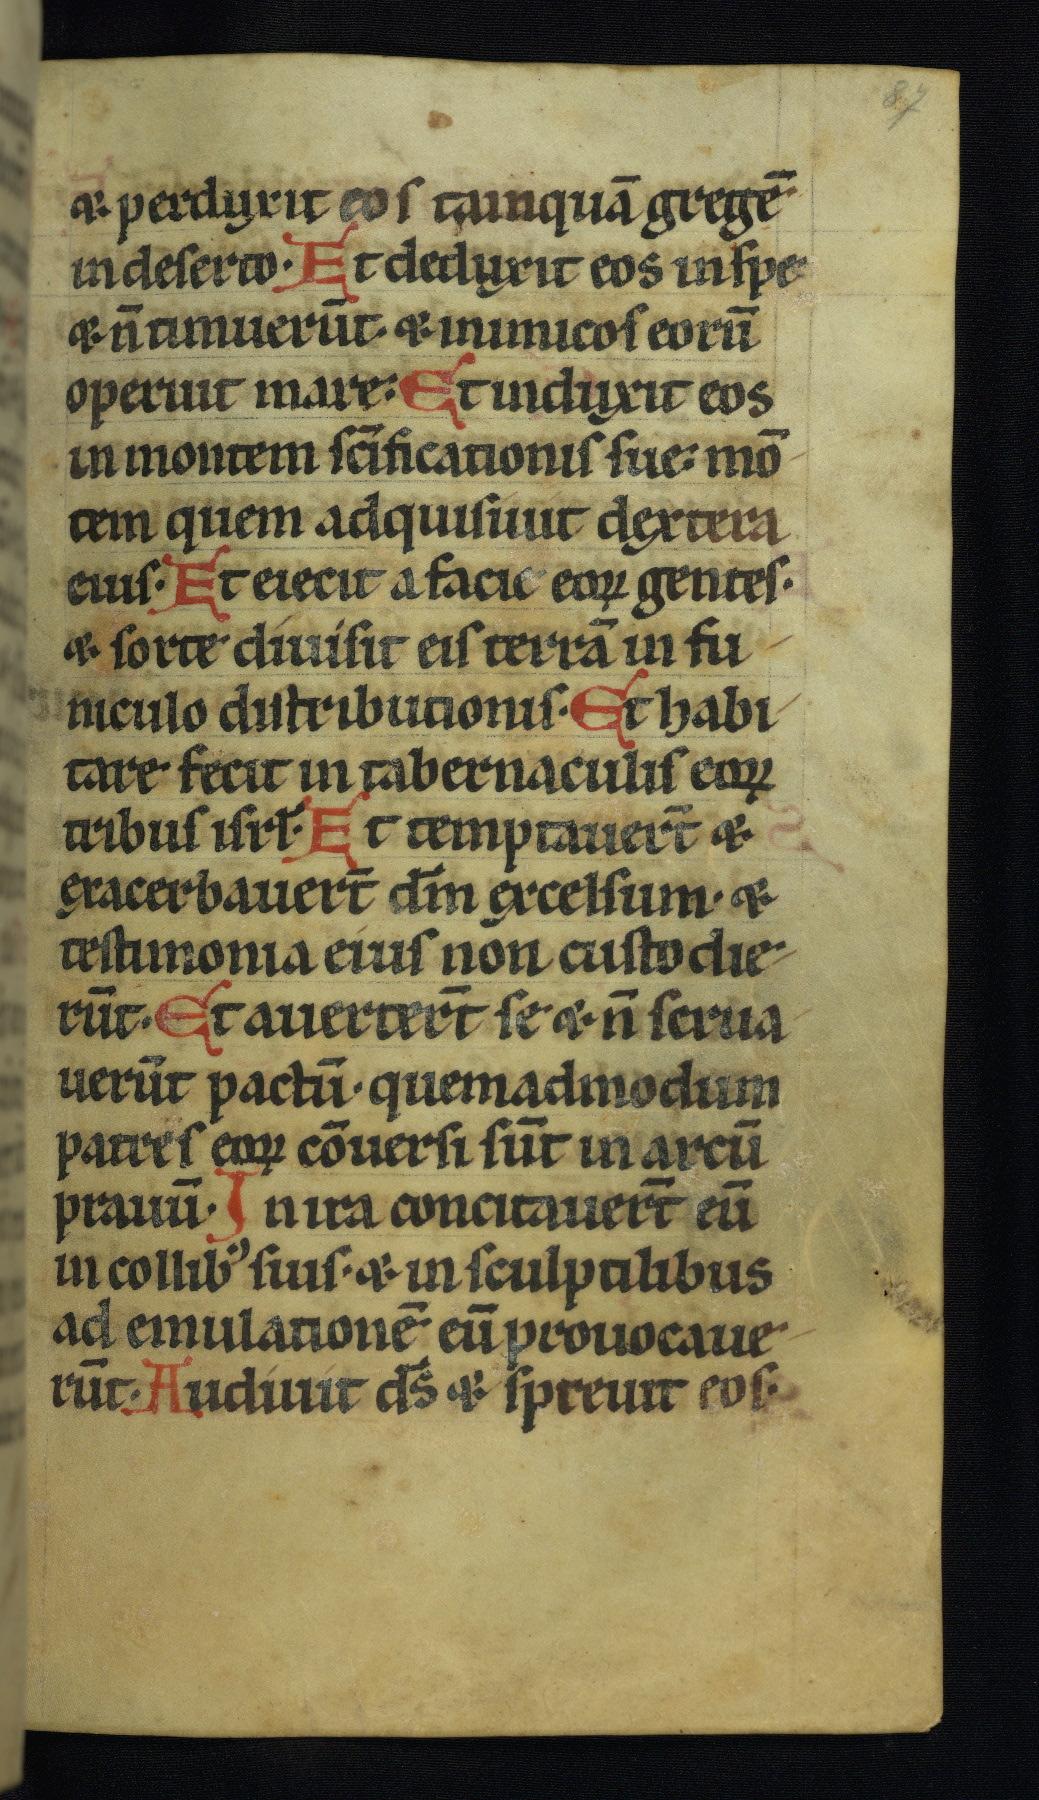 87
⁊ perduxit eos tamquā gregē
in deserto. Et deduxit eos in spe
⁊ n̄ timuerūt. ⁊ inimicos eorū
operuit mare. Et induxit eos
in montem sc̄ificationis sue. mō
tem quem adquisiuit dextera
eius. Et eiecit a facie eoꝝ gentes.
⁊ sorte diuisit eis terrā in fu
niculo distributionis. Et habi
tare fecit in tabernaculis eoꝝ
tribus isrl̄. Et temptauer̄t ⁊
exacerbauer̄t dm̄ excelsum. ⁊
testimonia eius non custodie
rūt. Et auerter̄t se ⁊ n̄ serua
uerūt pactū. quemadmodum
patres eoꝝ cōuersi sūt in arcū
prauū. In ira concitauer̄t eū
in collibꝰ suis. ⁊ in sculptilibus
ad emulationē eū prouocaue
rūt. Audiuit ds̄ ⁊ spreuit eos.